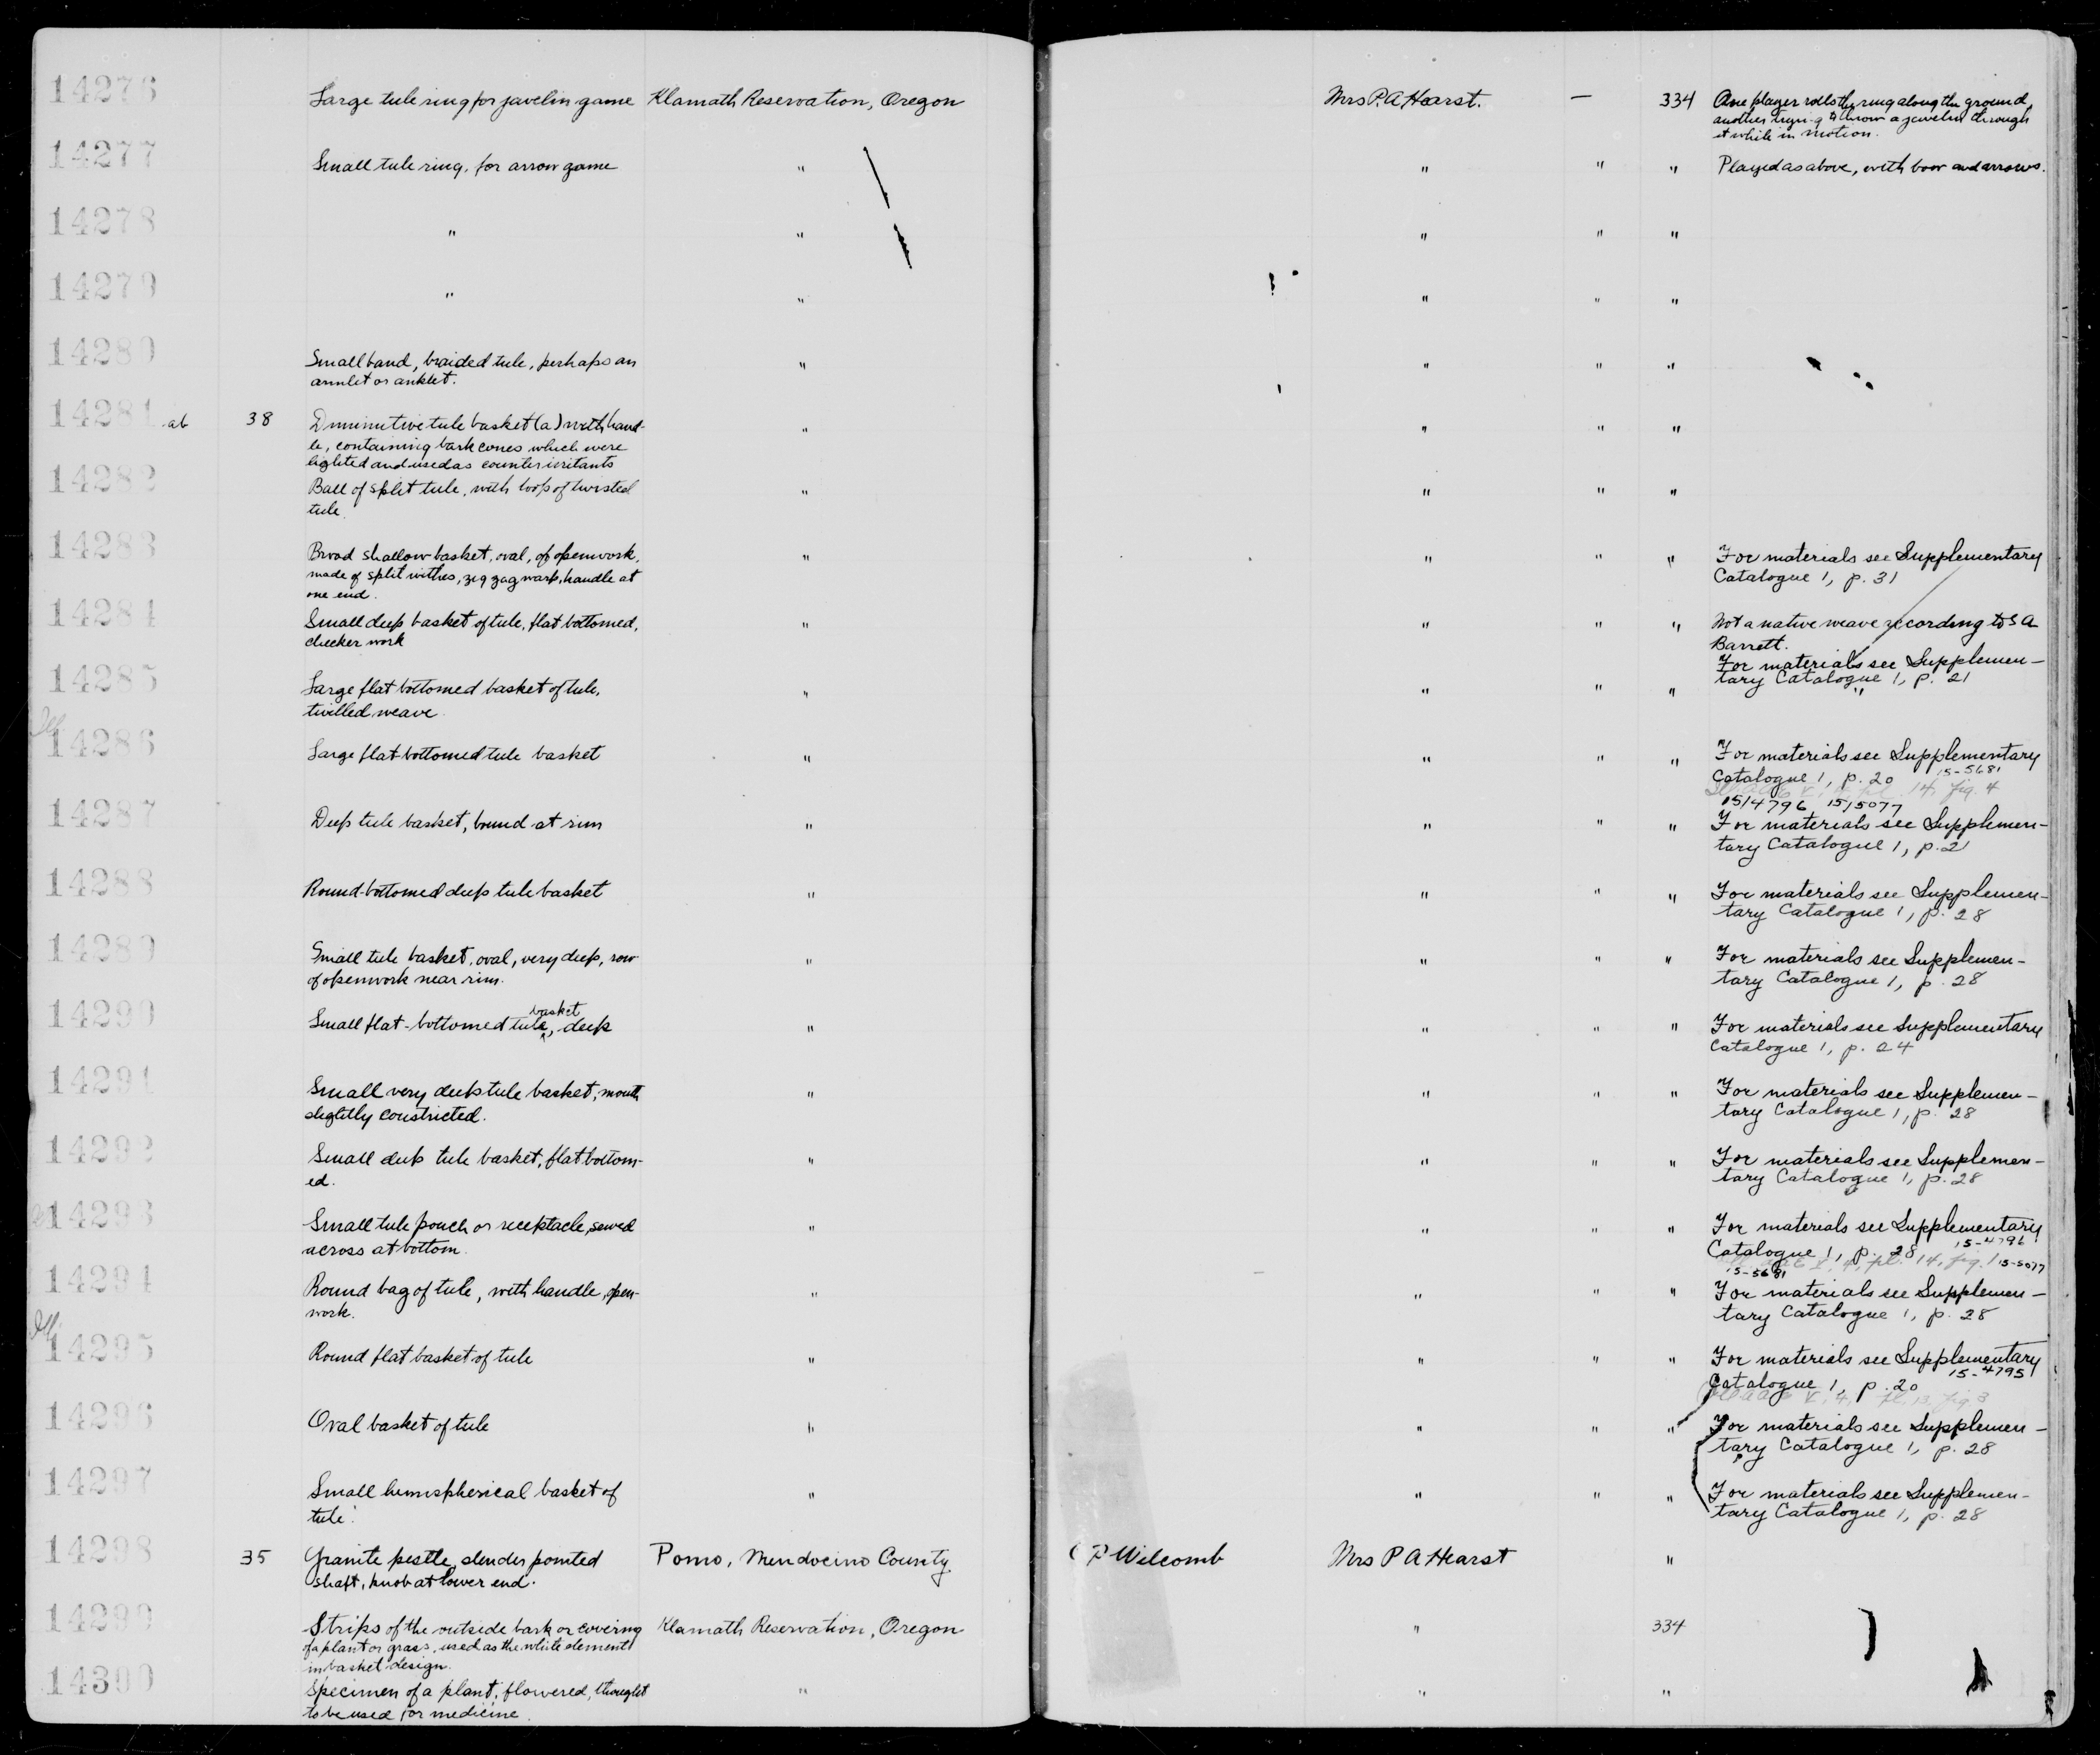 14276 Large tule ring for javelin game Klamath Reservation, Oregon Mrs P.A Hearst. — 334 One player rolls the ring along the ground,
another trying to throw a javelin through
it while in motion.
14277 Small tule ring, for arrow game " " " " Played as above, with bow and arrows.
14278 " " " " "
14279 " " " " "
14280 Small band, braided tule, perhaps an " " " "
armlet or anklet.
14281 ab 38 Diminutive tule basket (a) with hand- " " " "
le, containing bark cones which were
lighted and used as counter irritants
14282 Ball of split tule, with loop of twisted " " " "
tule.
14283 Broad shallow basket, oval, of openwork, " " " " For materials see Supplementary
made of split withes, zig zag warp, handle at Catalogue 1, p. 31
one end.
14284 Small deep basket of tule, flat bottomed, " " " " Not a native weave according to S A
checker work Barrett.
For materials see Supplemen-
tary Catalogue 1, p. 21
14285 Large flat bottomed basket of tule, " " " " "
twilled weave.
14286 Large flat-bottomed tule basket " " " " For materials see Supplementary
Catalogue 1, p. 20 15-5681
14, fig. 4
15/4796 15/5077
14287 Deep tule basket, bound at rim " " " " For materials see Supplemen-
tary Catalogue 1, p. 21
14288 Round-bottomed deep tule basket " " " " For materials see Supplemen-
tary Catalogue 1, p. 28
14289 Small tule basket, oval, very deep, row " " " " For materials see Supplemen-
of openwork near rim. tary Catalogue 1, p. 28
14290 Small flat-bottomed tule basket, deep " " " " For materials see Supplementary
Catalogue 1, p. 24
14291 Small very deep tule basket, mouth " " " " For materials see Supplemen-
slightly constricted. tary Catalogue 1, p. 28
14292 Small deep tule basket, flat bottom- " " " " For materials see Supplemen-
ed. tary Catalogue 1, p. 28
14293 Small tule pouch or receptacle, sewed " " " " For materials see Supplementary
across at bottom. Catalogue 1, p. 28 15-4796
pl. 14, fig. 1 15-5077
15-5681
14294 Round bag of tule, with handle, open- " " " " For materials see Supplemen-
work. tary Catalogue 1, p. 28
14295 Round flat basket of tule " " " " For materials see Supplementary
Catalogue 1, p. 20 15-4795
fig 3
14296 Oval basket of tule " " " " For materials see Supplemen-
tary Catalogue 1, p. 28
14297 Small hemispherical basket of " " " " For materials see Supplemen-
tule. tary Catalogue 1, p. 28
14298 35 Granite pestle, slender pointed Pomo, Mendocino County C P Wilcomb Mrs P A Hearst "
shaft, knob at lower end.
14299 Strips of the outside bark or covering Klamath Reservation, Oregon " 334
of a plant or grass, used as the white element
in basket design.
14300 Specimen of a plant, flowered, thought " " "
to be used for medicine.